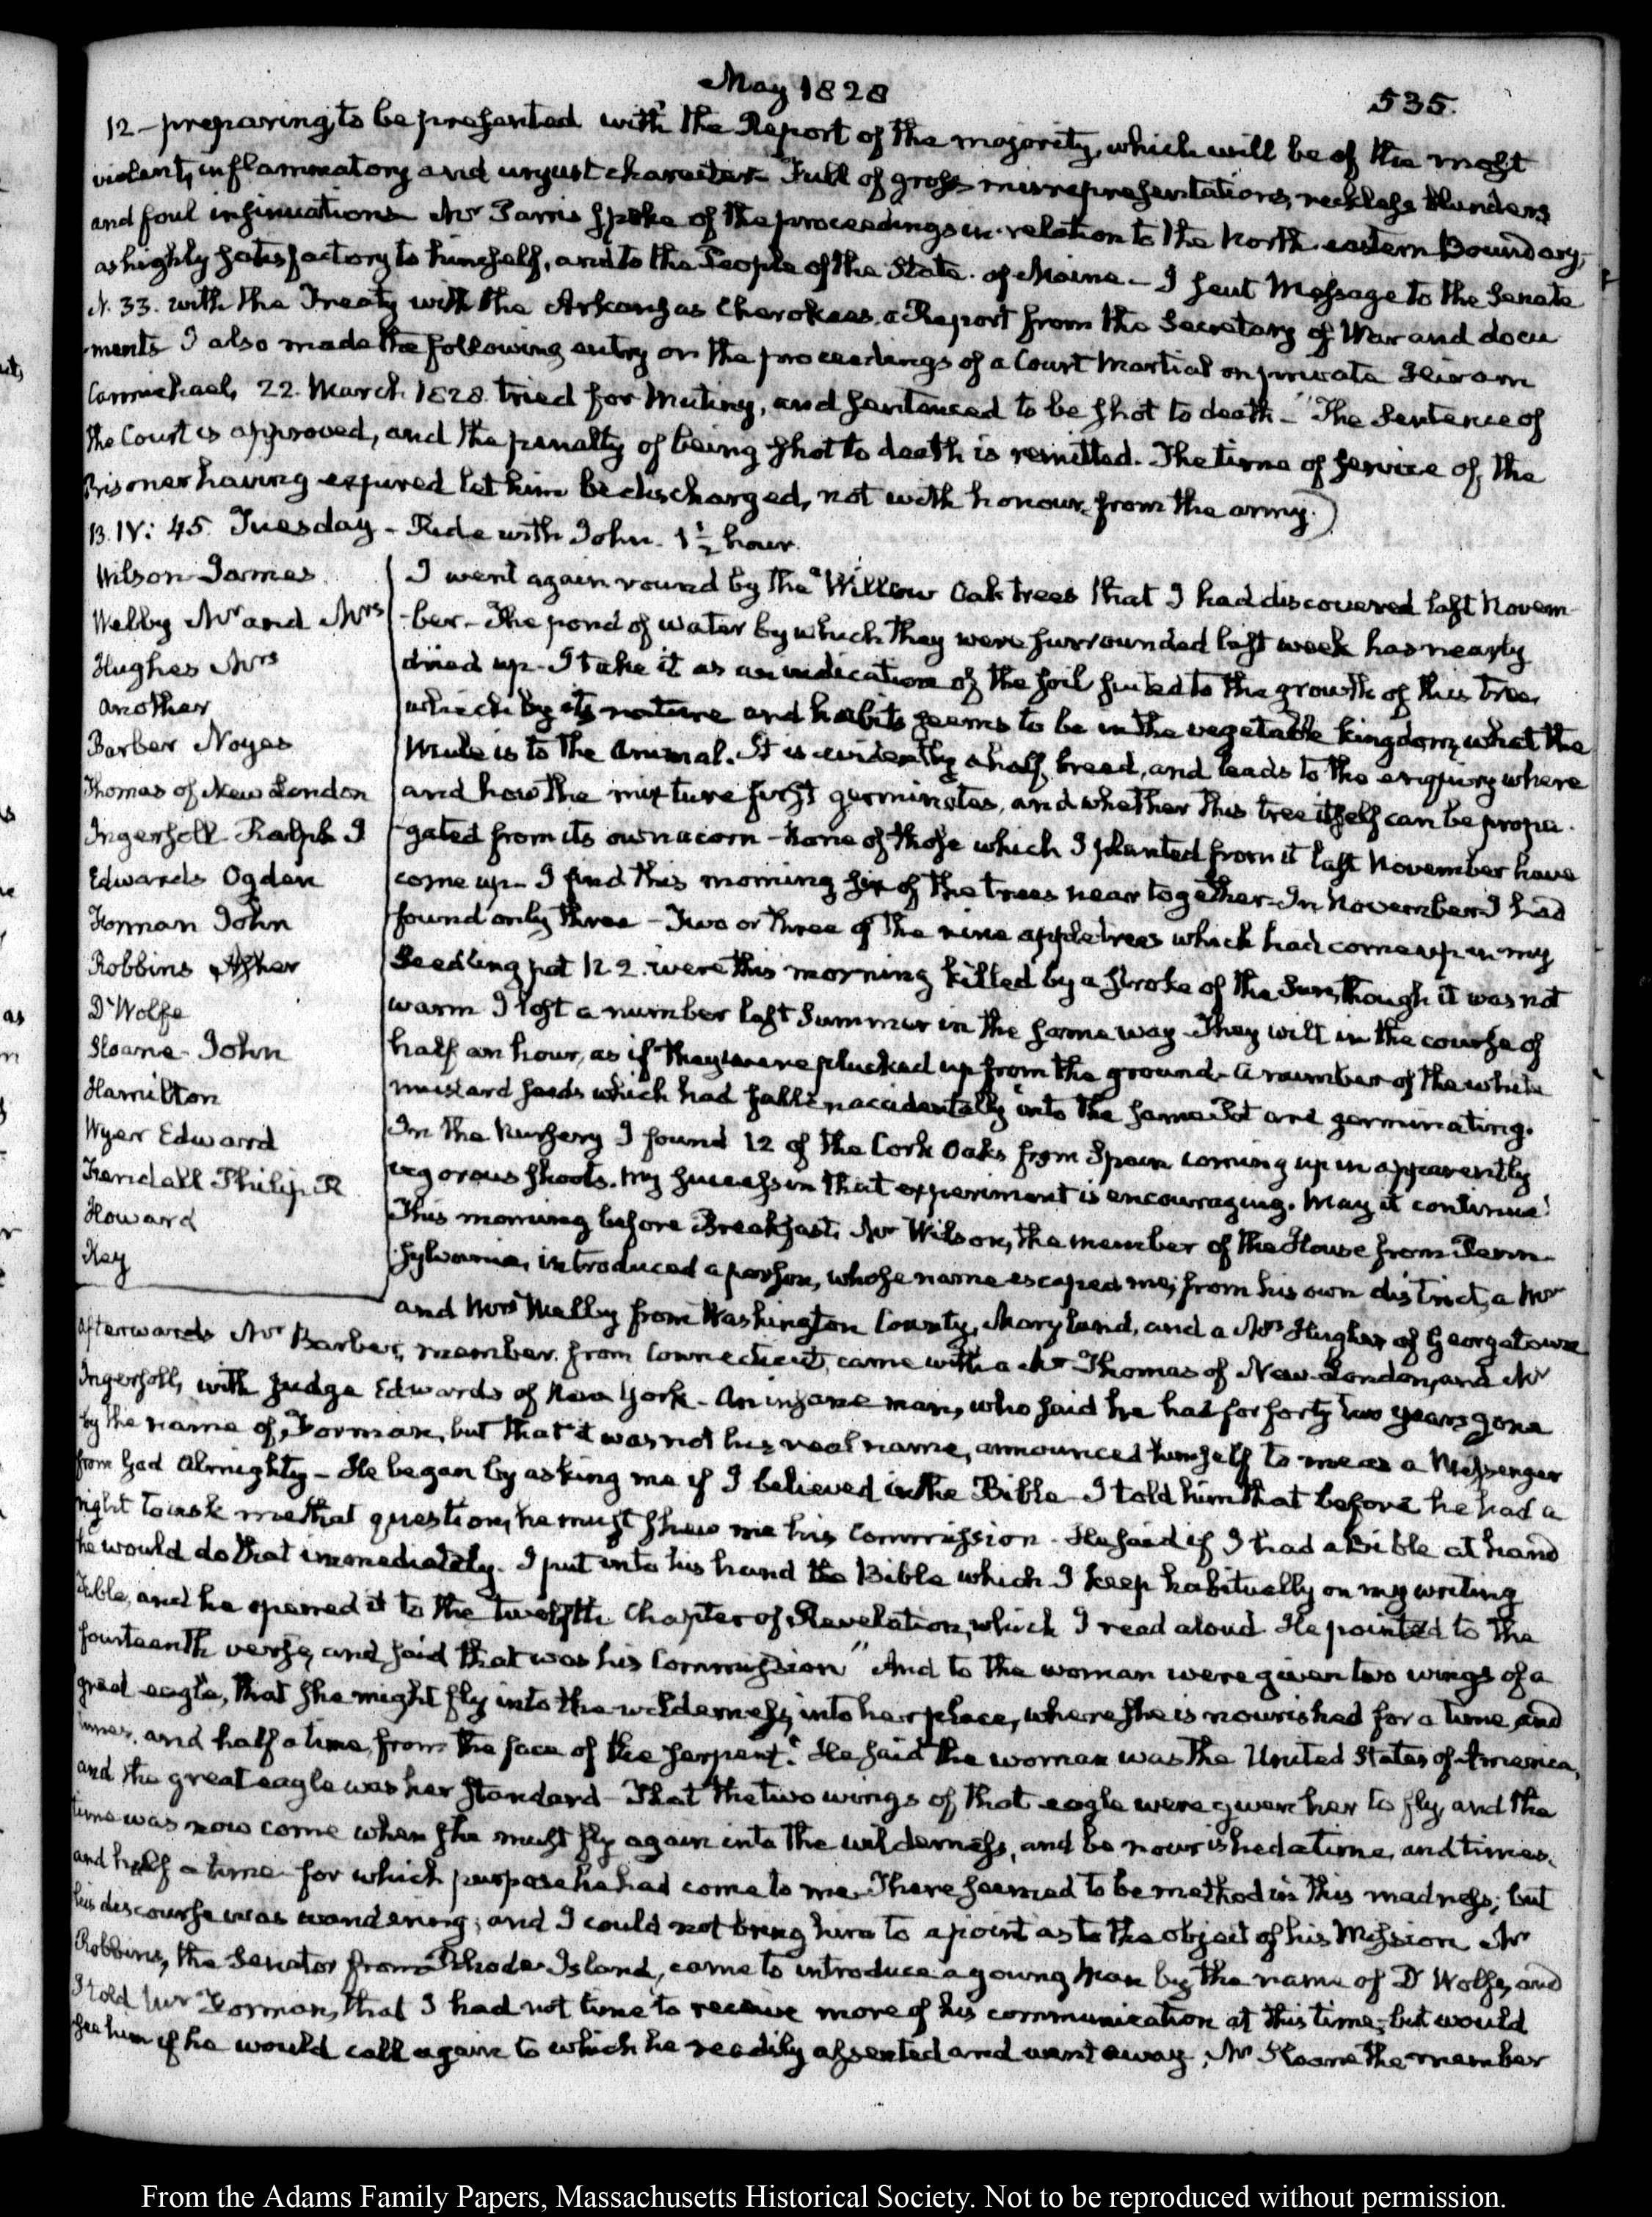 May 1828
535.
12 – preparing, to be presented with the Report of the majority, which will be of the most
violent, inflammatory and unjust character. Full of gross misrepresentations, reckless blunders
and foul insinuations Mr Parris spoke of the proceedings in relation to the North eastern Boundary,
as highly satisfactory to himself, and to the People of the State of Maine – I sent Message to the Senate
N. 33. with the Treaty with the Arkansas Cherokees, a Report from the Secretary of War and docu
-ments I also made the following entry on the proceedings of a Court Martial on private Hiram
Carmichael, 22. March 1828 tried for Mutiny, and sentenced to be shot to death – "The Sentence of
the Court is approved, and the penalty of being shot to death is remitted. The time of service of the
Prisoner having expired let him be discharged, not with honour from the army.)
13. IV: 45. Tuesday – Ride with John. 1 1/2 hour.
Wilson James
Welby Mr and Mrs
Hughes Mrs
another
Barber Noyes
Thomas of New London
Ingersoll Ralph I
Edwards Ogden
Forman John
Robbins Asher
D'Wolfe
Sloane John
Hamilton
Wyer Edward
Fendall Philip R
Howard
Key
I went again round by the Willow Oak trees that I had discovered last Novem-
-ber – The pond of water by which they were surrounded last week has nearly
dried up – I take it as an indication of the soil suited to the growth of this tree,
which by its nature and habits seems to be in the vegetable kingdom, what the
Mule is to the animal. It is evidently a half breed, and leads to the enquiry where
and how the mixture first germinates, and whether this tree itself can be propa-
-gated from its own acorn – None of those which I planted from it last November have
come up – I find this morning six of the trees near together – In November I had
found only three – Two or three of the nine apple trees which had come up in my
Seedling pot N. 2. were this morning killed by a stroke of the Sun, though it was not
warm I lost a number last Summer in the same way – They wilt in the course of
half an hour, as if they were plucked up from the ground – a number of the white
mustard seeds which had fallen accidentally into the same Pot and germinating.
In the Nursery I found 12 of the Cork Oaks from Spain coming up in apparently
vigorous shoots. My success in that experiment is encouraging. May it continue!
This morning before Breakfast, Mr Wilson, the member of the House from Penn-
sylvania, introduced a person, whose name escaped me, from his own district, a Mr
and Mrs Welby from Washington County, Maryland, and a Mrs Hughes of Georgetown
afterwards Mr Barber, member from Connecticut, came with a Mr Thomas of New-London, and Mr
Ingersoll, with Judge Edwards of New York – An insane man, who said he had for forty two years gone
by the name of Forman, but that it was not his real name, announced himself to me as a Messenger
from God Almighty – He began by asking me if I believed in the Bible – I told him that before he had a
right to ask me that question, he must shew me his Commission – He said if I had a Bible at hand
he would do that immediately. I put into his hand the Bible which I keep habitually on my writing
Table, and he opened it to the twelfth Chapter of Revelation, which I read aloud He pointed to the
fourteenth verse, and said that was his Commission "And to the woman were given two wings of a
great eagle, that she might fly into the wilderness, into her place, where she is nourished for a time, and
times, and half a time, from the face of the serpent." He said the woman was the United States of America,
and the great eagle was her Standard – That the two wings of that eagle were given her to fly, and the
time was now come when she must fly again into the wilderness, and be nourished a time, and times,
and half a time – for which purpose he had come to me – There seemed to be method in this madness; but
his discourse was wandering, and I could not bring him to a point as to the object of his Mission Mr
Robbins, the Senator from Rhode Island, came to introduce a young man by the name of D'Wolfe, and
I told Mr Forman, that I had not time to receive more of his communication at this time, but would
see him if he would call again to which he readily assented and went away, Mr Sloane the member
From the Adams Family Papers, Massachusetts Historical Society. Not to be reproduced without permission.